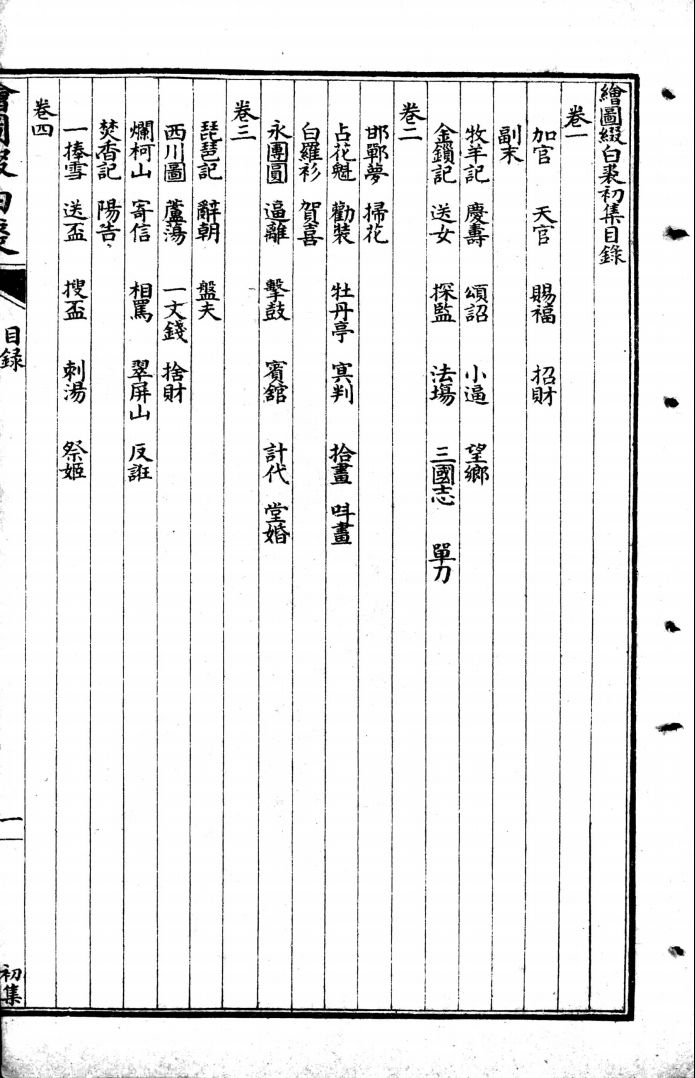 繪圖綴白裘初集目錄
卷一
加官 天官 賜福 招財
副末
牧羊記 慶壽 頌詔 小逼 望鄉
金鎖記 送女 探監 法場 三國志 單刀
卷二
邯鄲夢 掃花
占花魁 勸裝 牡丹亭 冥判 拾畫 叫畫
白羅衫 賀喜
永團圓 逼離 擊鼓 賓館 計代 堂婚
卷三
琵琶記 辭朝 盤夫
西川圖 蘆蕩 一文錢 捨財
爛柯山 寄信 相罵 翠屏山 反誑
焚香記 陽告
一捧雪 送盃 搜盃 刺湯 祭姬
卷四
繪圖綴白裘 目錄 一 初集